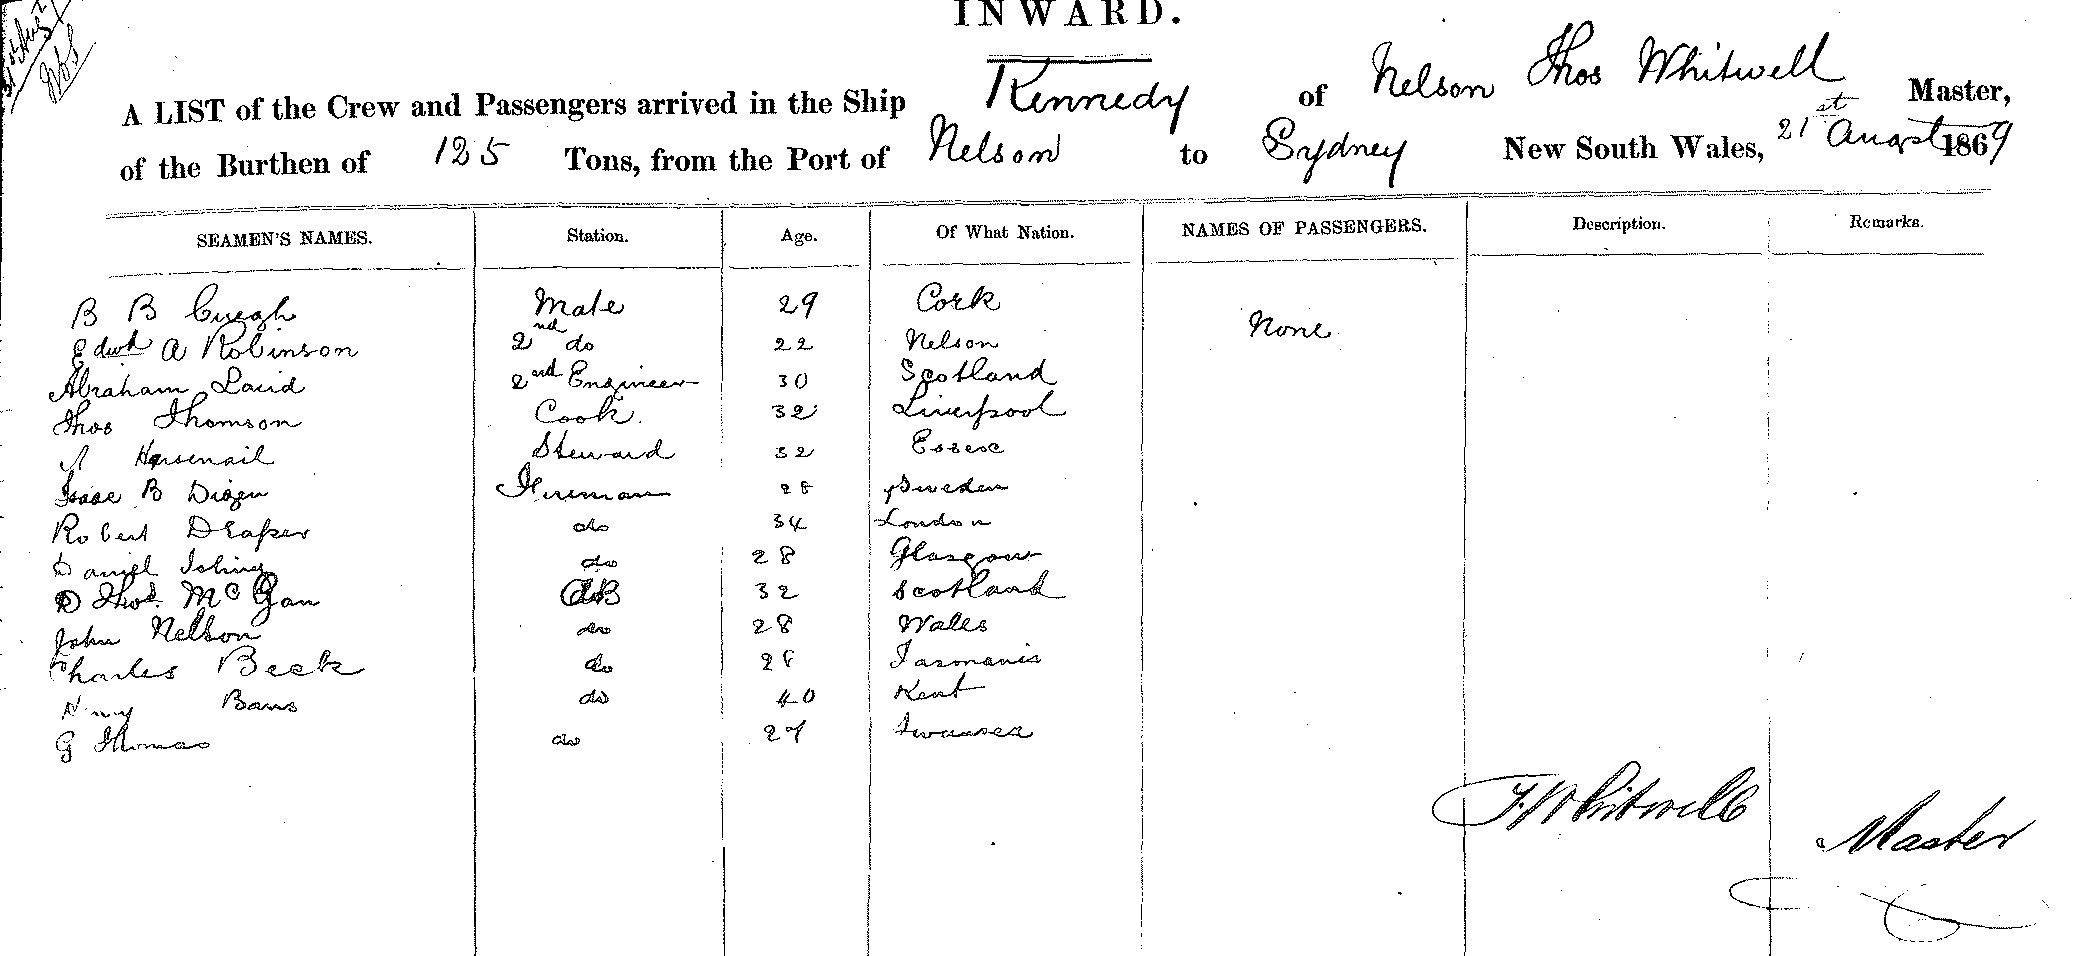 INWARD.
A LIST of the Crew and Passengers arrived in the Ship Kennedy of Nelson Thos Whitwell Master,
of the Burthen of 125 Tons, from the Port of Nelson to Sydney New South Wales, 21st Augst 1869
SEAMEN'S NAMES. Station. Age. Of What Nation. NAMES OF PASSENGERS. Description. Remarks.
B B Mate 29 Cork None
Edwd A Robinson 2nd do 22 Nelson
Abraham Laird 2nd Engineer 30 Scotland
Thos Thomson Cook. 32 Liverpool
Horsenail Steward 32 Essex
Isaac B Fireman 28 Sweden
Robert Draper do 34 London
Daniel do 28 Glasgow
Thos. McGan AB 32 Scotland
John Nelson do 28 Wales
Charles Beck do 28 Tasmania
Henry do 40 Kent
G Thomas do 27 Swansea
T. Whitwell
Master